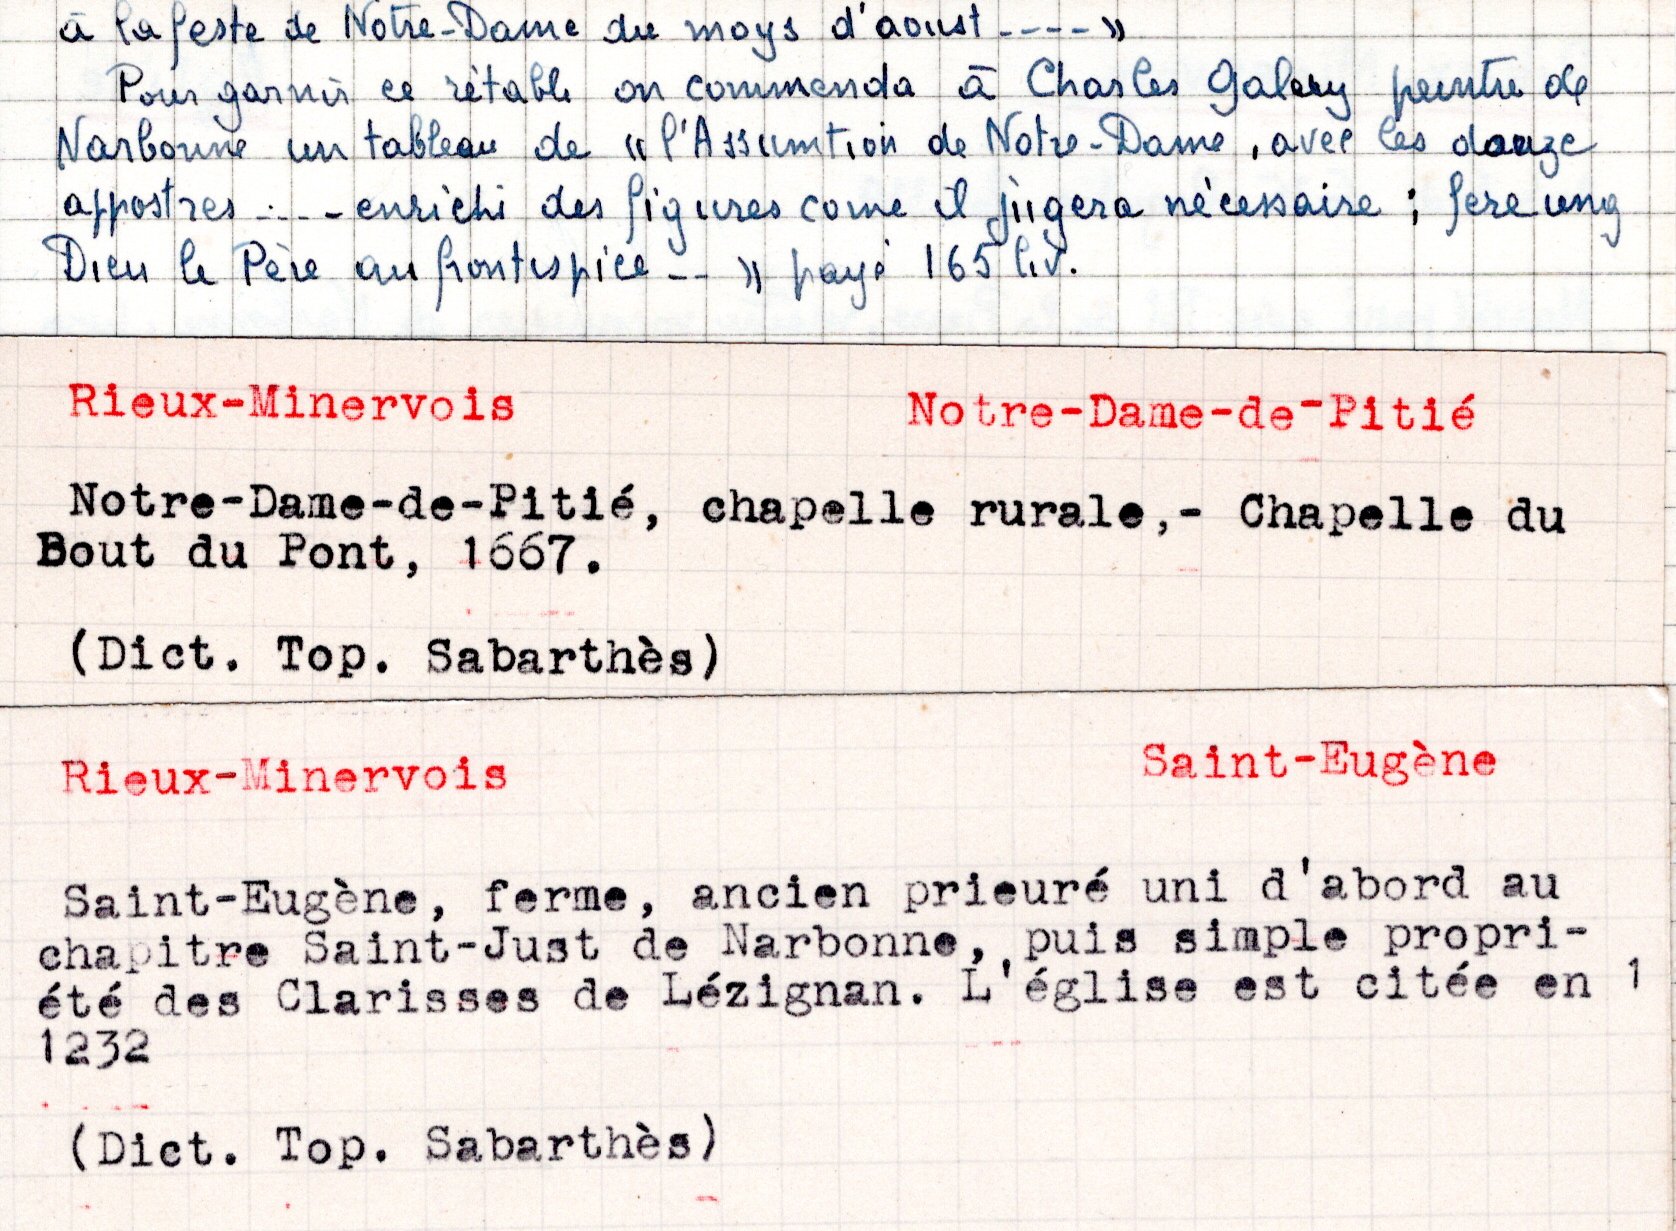 à la feste de Notre-Dame du moys d'aoust ---- »
Pour garnir ce rétable on commenda à Charles Galery peintre de
Narbonne un tableau de « l'Assumtion de Notre-Dame, avec les douze
appostres .... - enrichi des figures come il jugera nécessaire ; fere ung
Dieu le Père au frontispice -- » payé 165 liv.
Rieux-Minervois Notre-Dame-de-Pitié
Notre-Dame-de-Pitié, chapelle rurale,- Chapelle du
Bout du Pont, 1667.
(Dict. Top. Sabarthès)
Rieux-Minervois Saint-Eugène
Saint-Eugène, ferme, ancien prieuré uni d'abord au
chapitre Saint-Just de Narbonne, puis simple propri-
été des Clarisses de Lézignan. L'église est citée en 1
1232
(Dict. Top. Sabarthès)